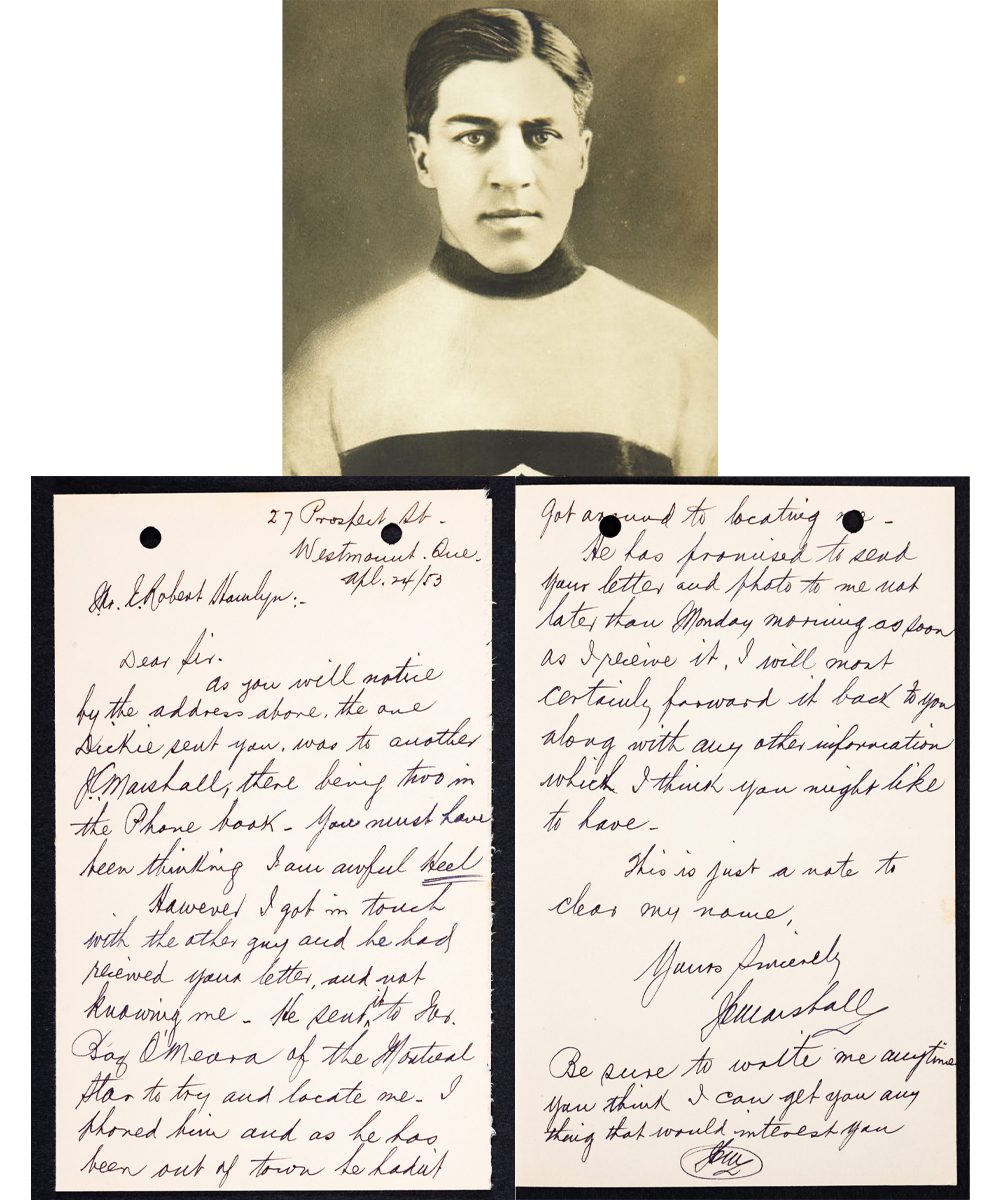 27 Prospect St -
Westmount. Que.
Apl. 24/53
Mr. E. Robert Hamlyn:-
Dear Sir.
as you will notice
by the address above, the one
Dickie sent you. was to another
J.C. Marshall, there being two in
the Phone book - You must have
been thinking I am awful Heel
However I got in touch
with the other guy and he had
recieved your letter, and not
knowing me - He sent it to Mr.
Baz O'Meara of the Montreal
Star to try and locate me - I
phoned him and as he has
been out of town he hadn't
Got around to locating me -
He has promised to send
your letter and photo to me not
later than Monday morning as soon
as I receive it, I will most
certainly forward it back to you
along with any other information
which I think you might like
to have -
This is just a note to
clear my name,
Yours Sincerely
JCMarshall
Be sure to write me anytime
you think I can get you any
thing that would interest you
JCM